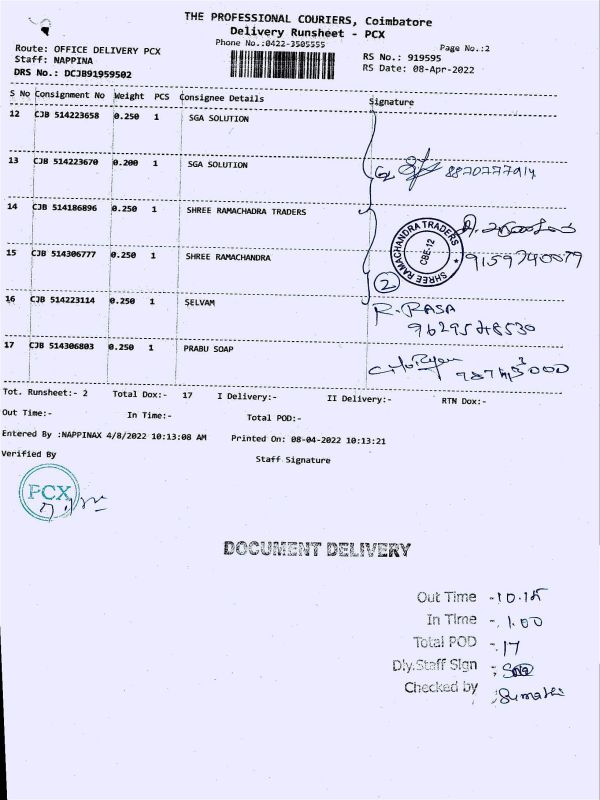 THE PROFESSIONAL COURIERS, Coimbatore
Delivery Runsheet - PCX
Phone No.:0422-3505555
Page No.:2
Route: OFFICE DELIVERY PCX
Staff: NAPPINA
DRS No.: DCJB91959502
RS No.: 919595
RS Date: 08-Apr-2022
S No Consignment No Weight PCS Consignee Details Signature
12 CJB 514223658 0.250 1 SGA SOLUTION
13 CJB 514223670 0.200 1 SGA SOLUTION
8870777914
14 CJB 514186896 0.250 1 SHREE RAMACHADRA TRADERS
SHREE RAMACHANDRA TRADERS
CBE-12
15 CJB 514306777 0.250 1 SHREE RAMACHANDRA
9159740079
2
16 CJB 514223114 0.250 1 SELVAM
R. RASA
9629548530
17 CJB 514306803 0.250 1 PRABU SOAP
Tot. Runsheet:- 2 Total Dox:- 17 I Delivery:- II Delivery:- RTN Dox:-
Out Time:- In Time:- Total POD:-
Entered By :NAPPINAX 4/8/2022 10:13:08 AM Printed On: 08-04-2022 10:13:21
Verified By
Staff Signature
PCX
DOCUMENT DELIVERY
Out Time - 10.15
In Time - 1.00
Total POD - 17
Dly.Staff Sign :
Checked by : Sumathi